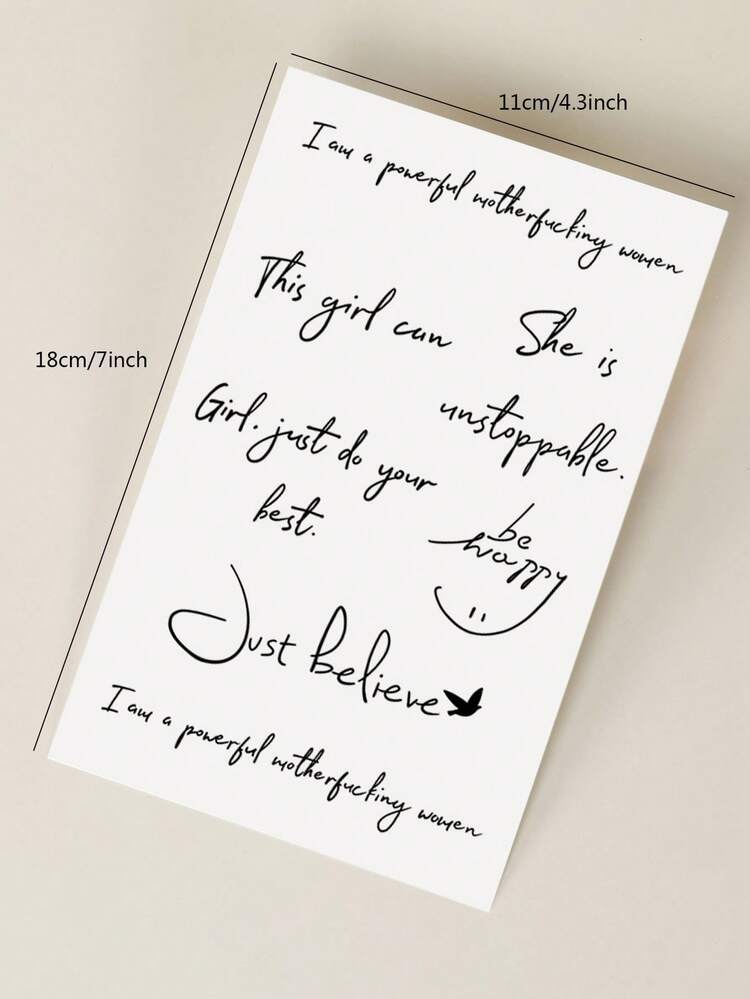 11cm/4.3inch
18cm/7inch
I am a powerful motherfucking women
This girl can
She is
unstoppable.
Girl. just do your
best.
be
happy
Just believe
I am a powerful motherfucking women